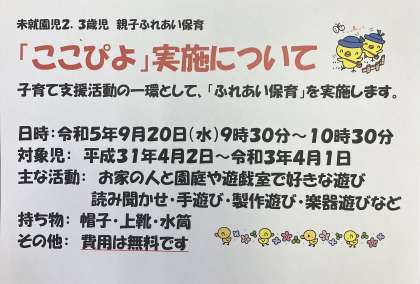 未就園児2．3歳児 親子ふれあい保育
「ここぴよ」実施について
子育て支援活動の一環として、「ふれあい保育」を実施します。
日時：令和5年9月20日（水）9時30分～10時30分
対象児： 平成31年4月2日～令和3年4月1日
主な活動： お家の人と園庭や遊戯室で好きな遊び
読み聞かせ・手遊び・製作遊び・楽器遊びなど
持ち物： 帽子・上靴・水筒
その他： 費用は無料です